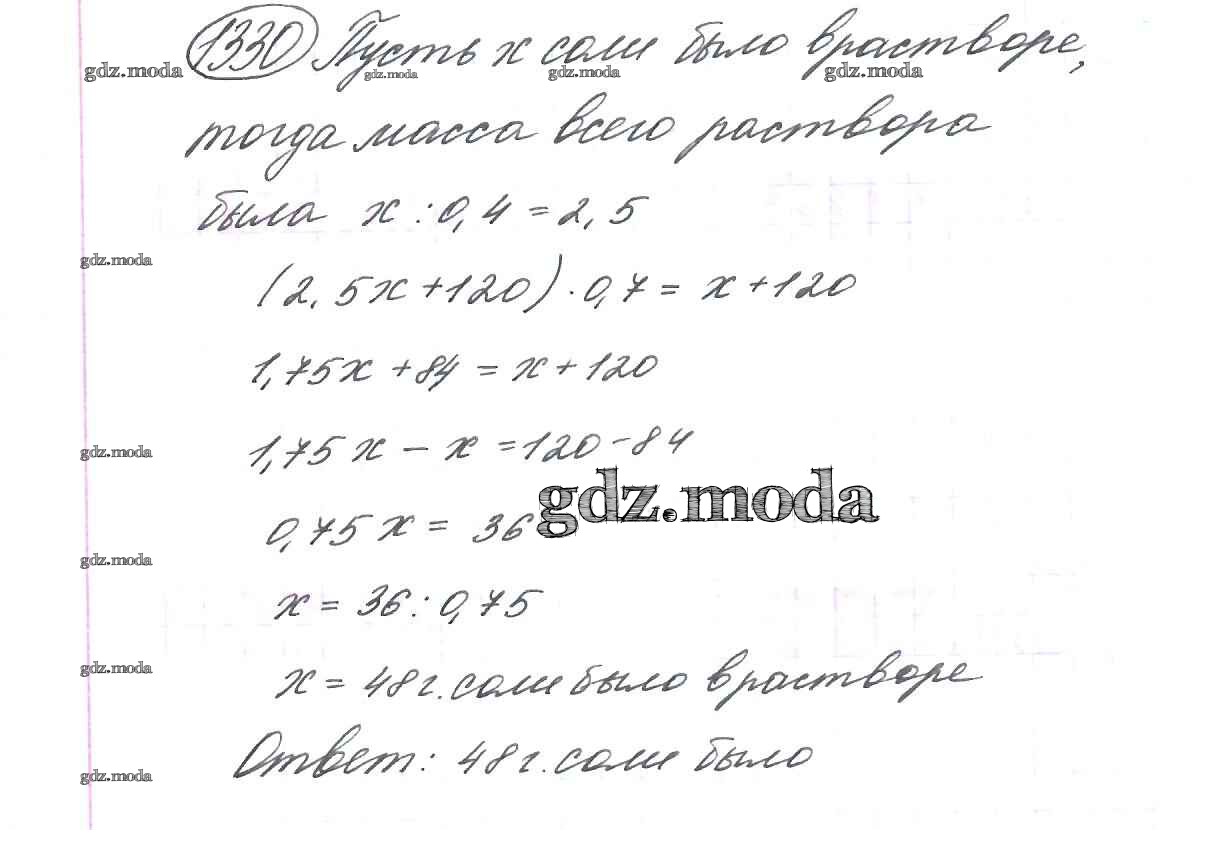 1330 Пусть х соли было в растворе,
gdz.moda gdz.moda gdz.moda gdz.moda
тогда масса всего раствора
была х : 0,4 = 2,5
gdz.moda
(2,5х + 120) · 0,7 = х + 120
1,75х + 84 = х + 120
1,75х - х = 120 - 84
gdz.moda
gdz.moda
0,75х = 36
gdz.moda
х = 36 : 0,75
gdz.moda
х = 48 г. соли было в растворе
Ответ: 48 г. соли было
gdz.moda